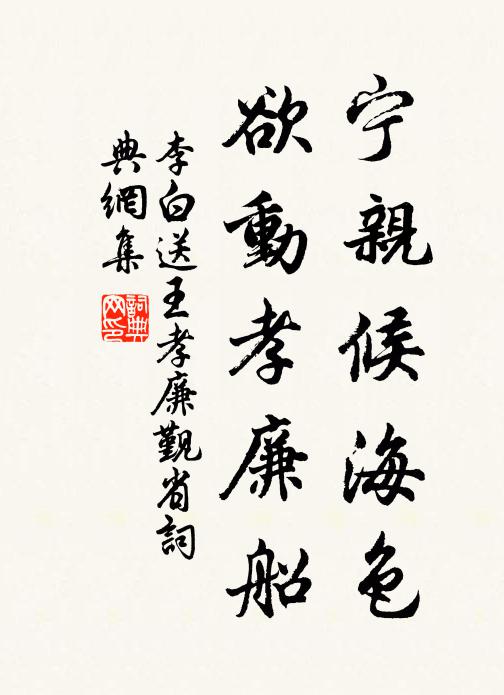 宁親候海色
欲動孝廉船
李白送王孝廉覲省詞
典網集
詞典网印